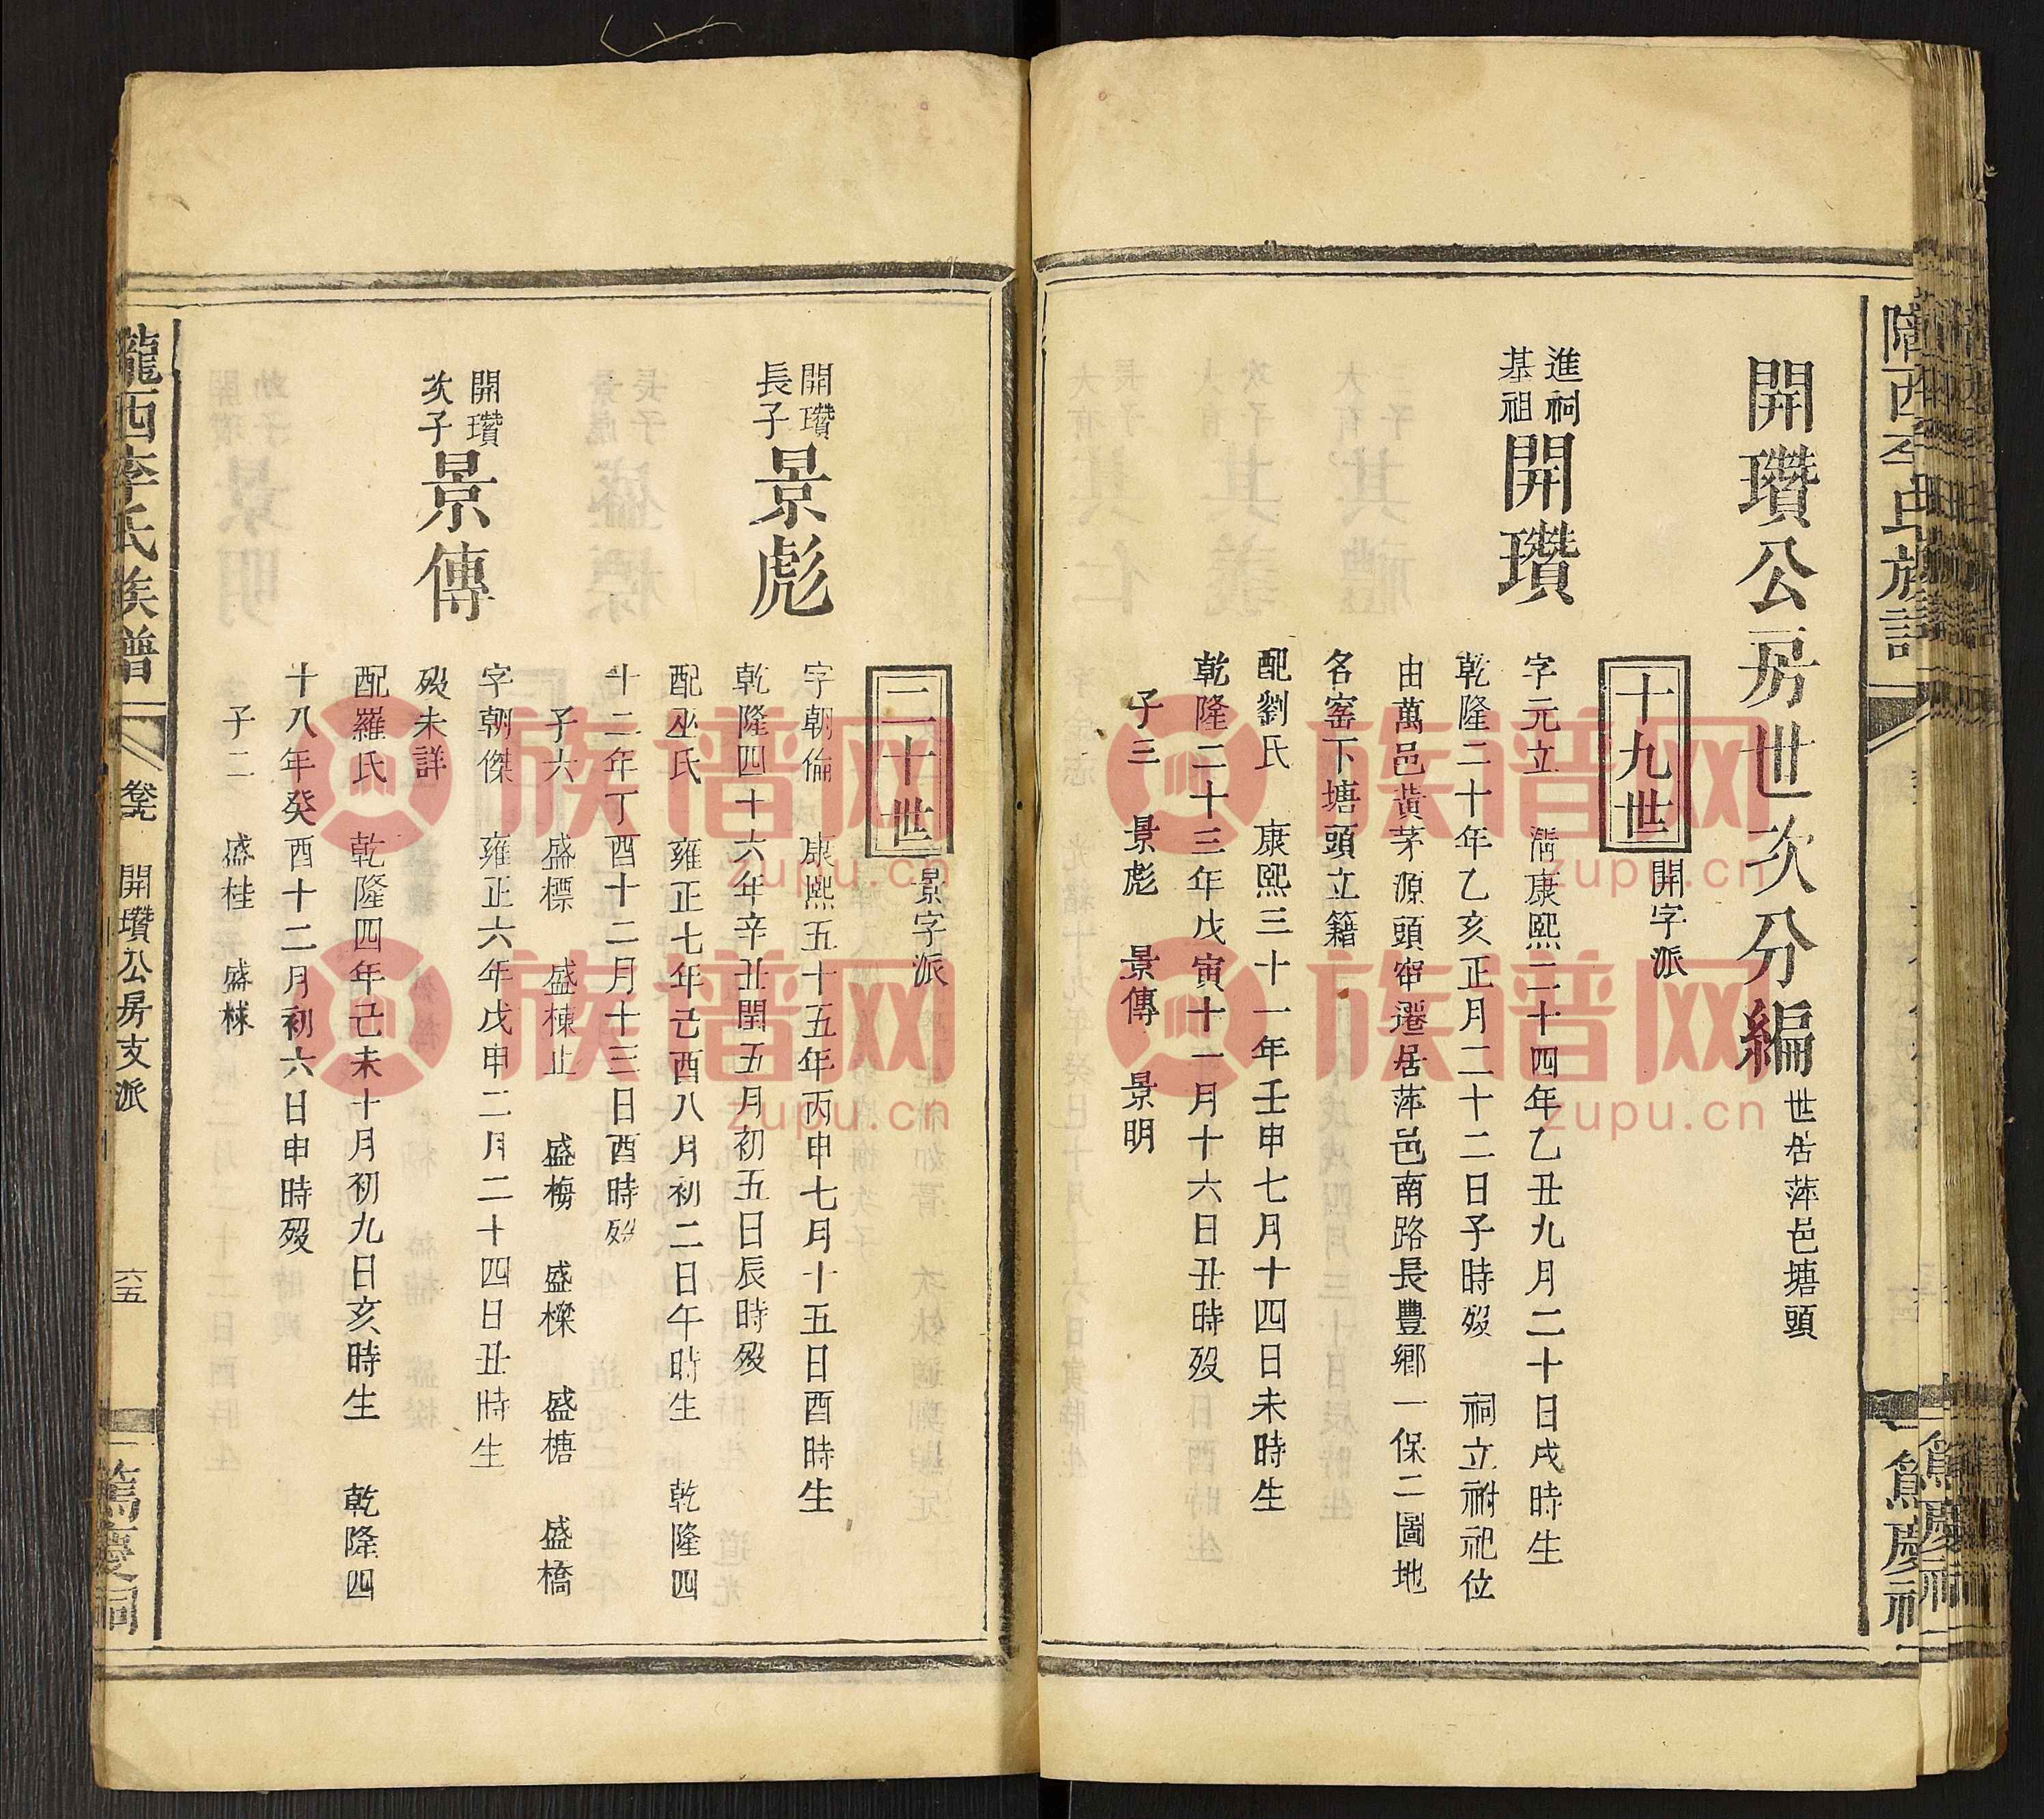 開瓚公房世次分編 世居萍邑塘頭
十九世 開字派
進祠
基祖
開瓚
字元立 清康熙二十四年乙丑九月二十日戌時生
乾隆二十年乙亥正月二十二日子時歿 祠立祔祀位
由萬邑黃茅源頭𢂽遷居萍邑南路長豐鄉一保二圖地
名窰下塘頭立籍
配劉氏 康熙三十一年壬申七月十四日未時生
乾隆二十三年戊寅十一月十六日丑時歿
子三 景彪 景傳 景明
二十世 景字派
開瓚
長子
景彪
字朝倫 康熙五十五年丙申七月十五日酉時生
乾隆四十六年辛丑閏五月初五日辰時歿
配巫氏 雍正七年己酉八月初二日午時生 乾隆四
十二年丁酉十二月十三日酉時歿
子六 盛標 盛棟止 盛梅 盛樑 盛榶 盛橋
開瓚
次子
景傳
字朝傑 雍正六年戊申二月二十四日丑時生
歿未詳
配羅氏 乾隆四年己未十月初九日亥時生 乾隆四
十八年癸酉十二月初六日申時歿
子二 盛桂 盛棶
隴西李氏族譜
開瓚公房支派
六五
篤慶祠
族谱网
zupu.cn
族谱网
zupu.cn
族谱网
zupu.cn
族谱网
zupu.cn